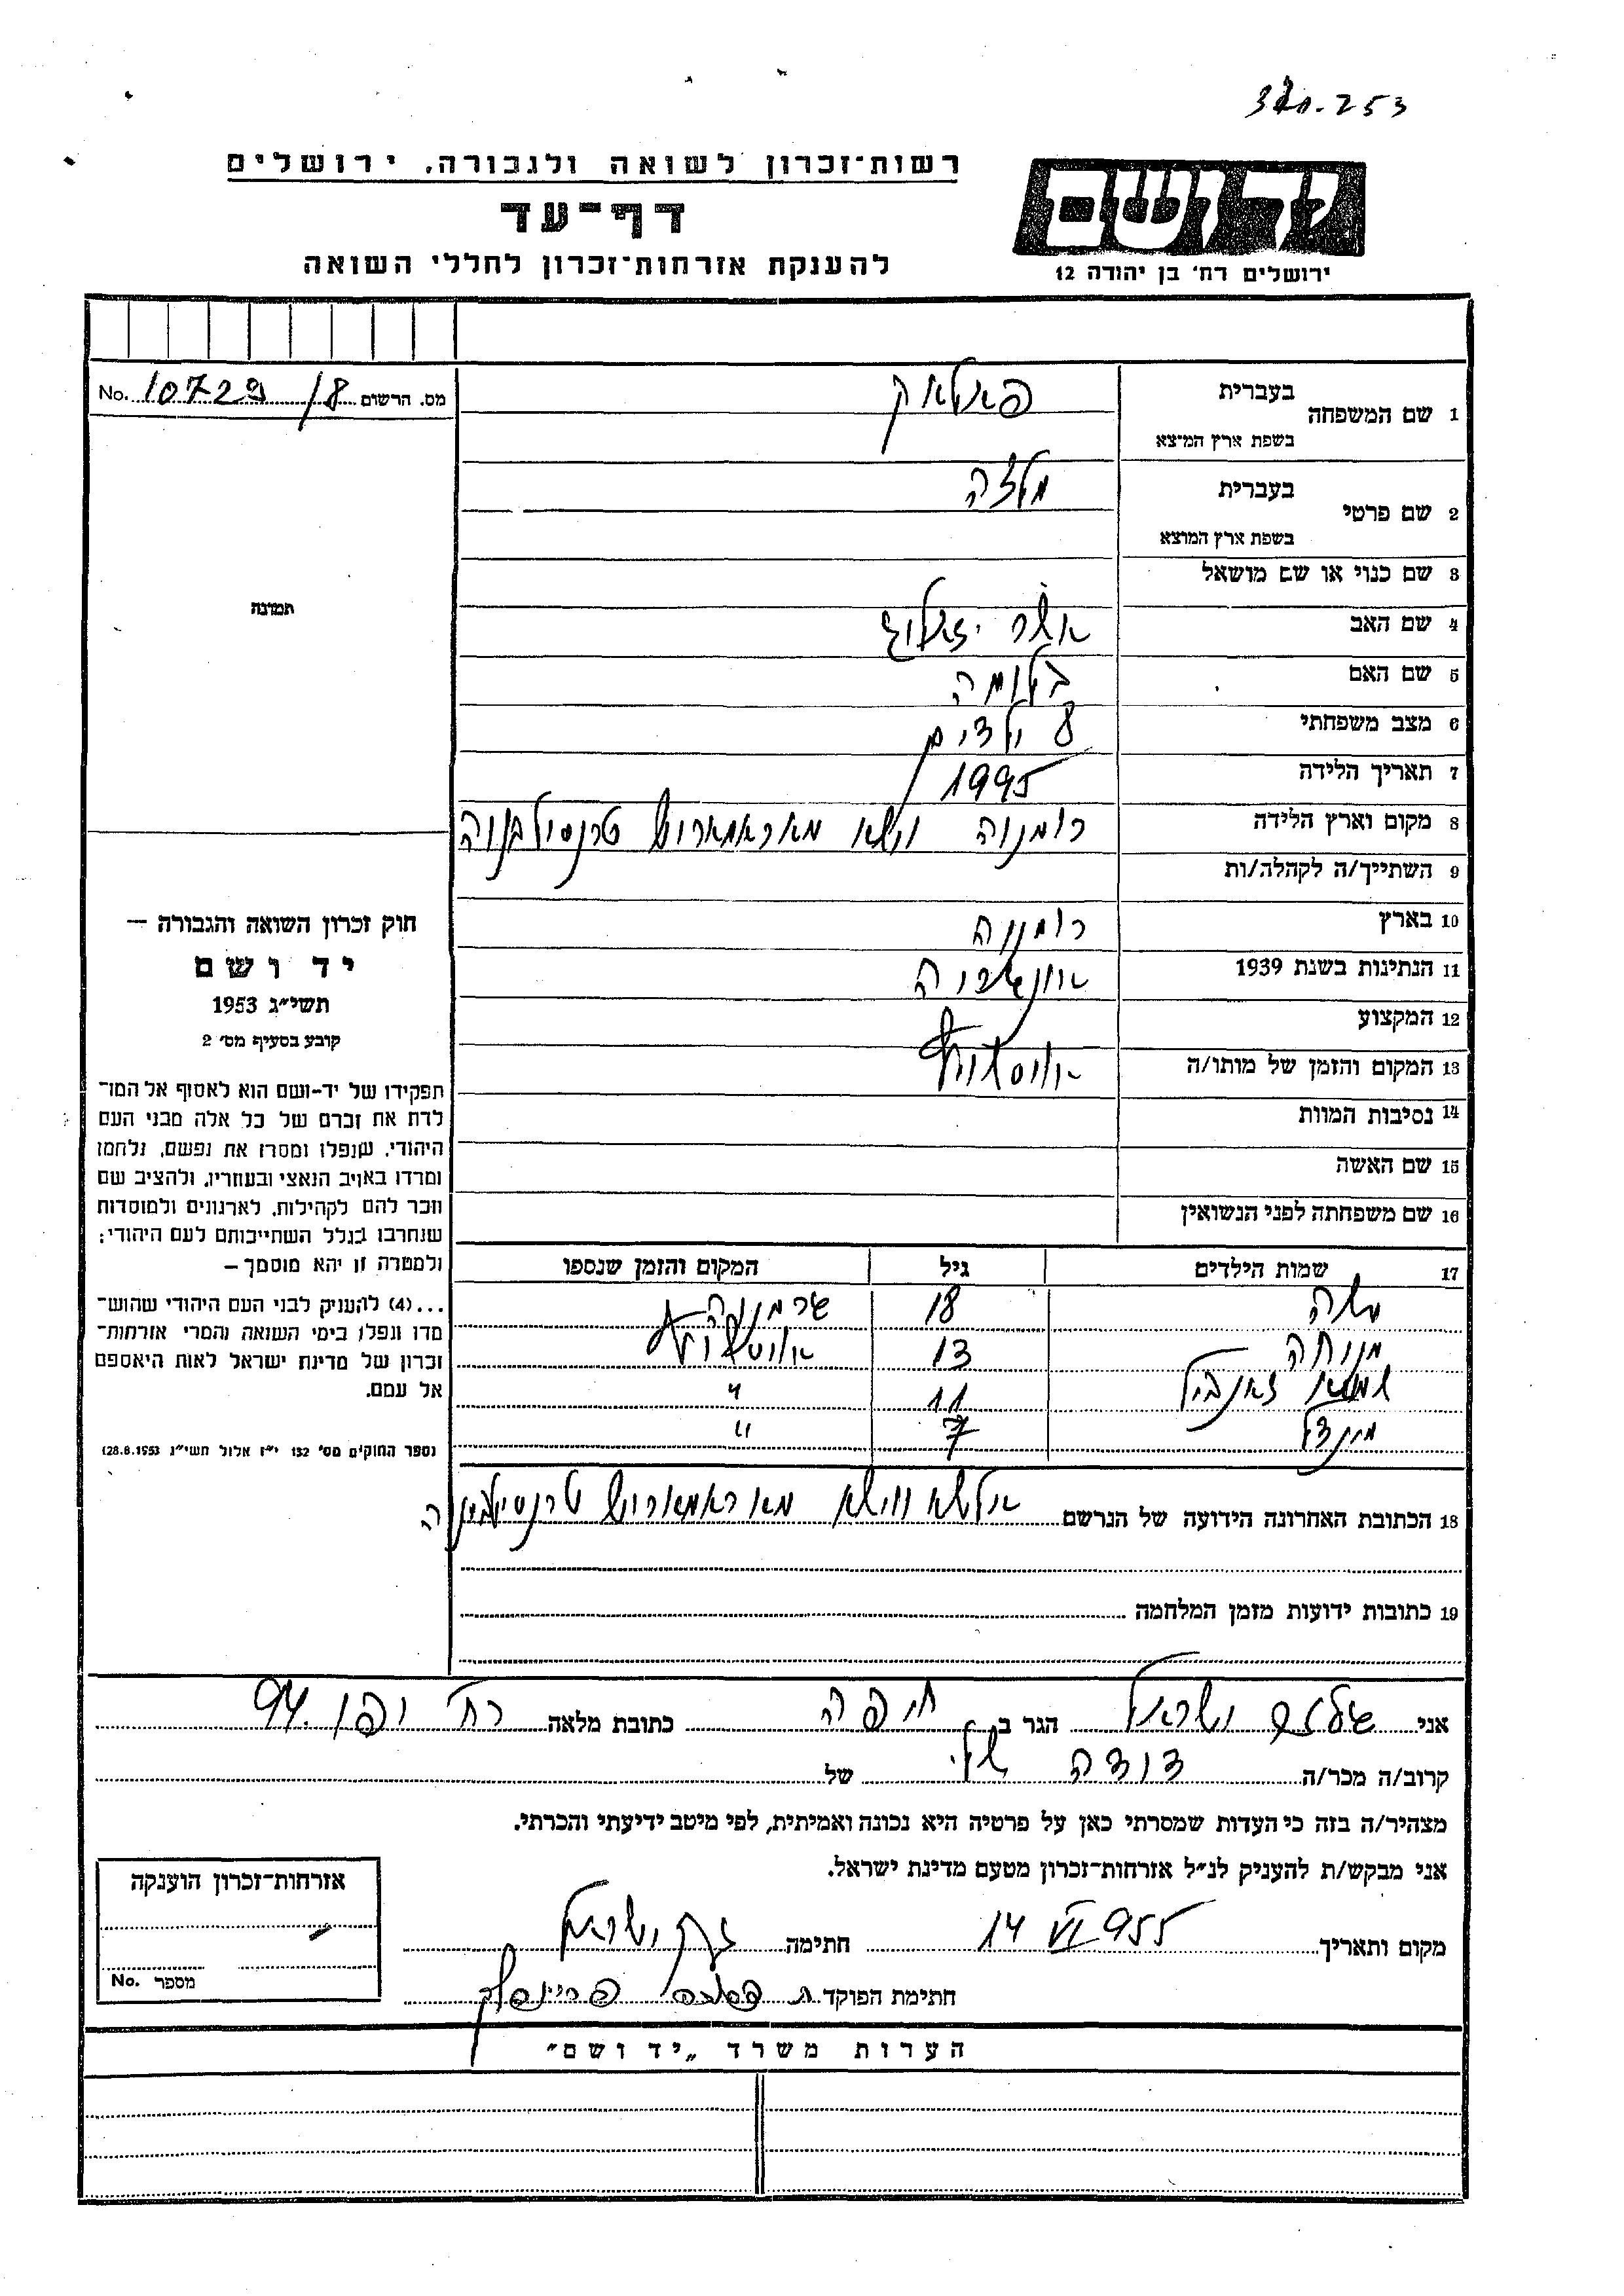 253
רשות־זכרון לשואה ולגבורה, ירושלים
דף־עד
להענקת אזרחות־זכרון לחללי השואה
יד ושם
ירושלים רח׳ בן יהודה 12
מס. הרשום 18/ 10729 No.
תמונה
1 שם המשפחה
בעברית
בשפת ארץ המוצא
2 שם פרטי
בעברית
בשפת ארץ המוצא
3 שם כנוי או שם מושאל
4 שם האב אשר
5 שם האם בלומה
6 מצב משפחתי 8 ילדים
7 תאריך הלידה 1995
8 מקום וארץ הלידה רומניה ווישא מאראמארוש טרנסילבניה
9 השתייך/ה לקהלה/ות
10 בארץ רומניה
11 הנתינות בשנת 1939
12 המקצוע
13 המקום והזמן של מותו/ה
14 נסיבות המוות
15 שם האשה
16 שם משפחתה לפני הנשואין
17 שמות הילדים גיל המקום והזמן שנספו
18
מנוחה 13
11 "
מינדל 7 "
18 הכתובת האחרונה הידועה של הנרשם ווישא מאראמארוש טרנסילבניה
19 כתובות ידועות מזמן המלחמה
חוק זכרון השואה והגבורה —
יד ושם
תשי״ג 1953
קובע בסעיף מס׳ 2
תפקידו של יד-ושם הוא לאסוף אל המו־
לדת את זכרם של כל אלה מבני העם
היהודי, שנפלו ומסרו את נפשם, נלחמו
ומרדו באויב הנאצי ובעוזריו, ולהציב שם
וזכר להם לקהילות, לארגונים ולמוסדות
שנחרבו בגלל השתייכותם לעם היהודי;
ולמטרה זו יהא מוסמך —
...(4) להעניק לבני העם היהודי שהוש־
מדו ונפלו בימי השואה והמרי אזרחות־
זכרון של מדינת ישראל לאות היאספם
אל עמם.
(ספר החוקים מס׳ 132 י״ז אלול תשי״ג 28.8.1953)
אני ישראל הגר ב חיפה כתובת מלאה רח׳ יפו 94.
קרוב/ה מכר/ה דודה שלי של
מצהיר/ה בזה כי העדות שמסרתי כאן על פרטיה היא נכונה ואמיתית, לפי מיטב ידיעתי והכרתי.
אני מבקש/ת להעניק לנ״ל אזרחות־זכרון מטעם מדינת ישראל.
מקום ותאריך 14 VI 955 חתימה ישראל
חתימת הפוקד
אזרחות־זכרון הוענקה
מספר No.
הערות משרד „יד ושם״